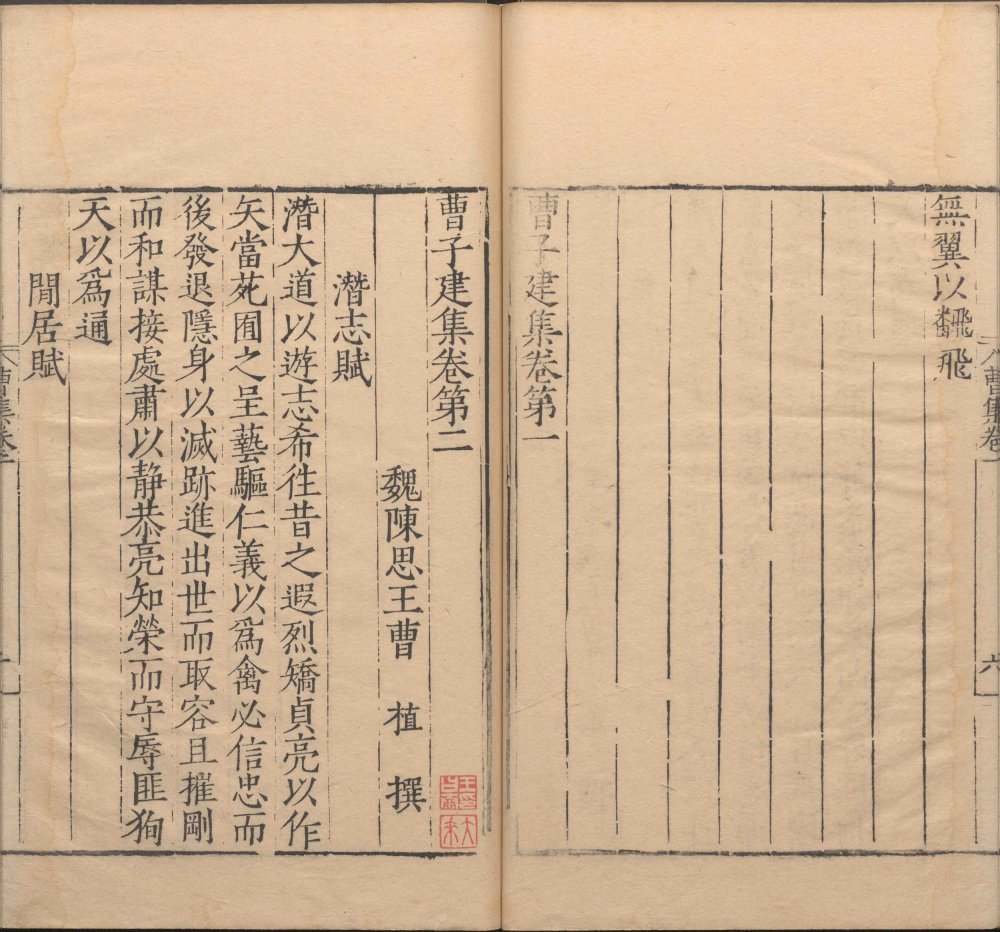 無翼以飜飛
曹子建集卷第一
曹集卷一
六
曹子建集卷第二
魏陳思王曹　植　撰
潛志賦
潛大道以遊志希往昔之遐烈矯貞亮以作
矢當苑囿之呈藝驅仁義以爲禽必信忠而
後發退隱身以滅跡進出世而取容且摧剛
而和謀接處肅以静恭亮知榮而守辱匪狥
天以爲通
閒居賦